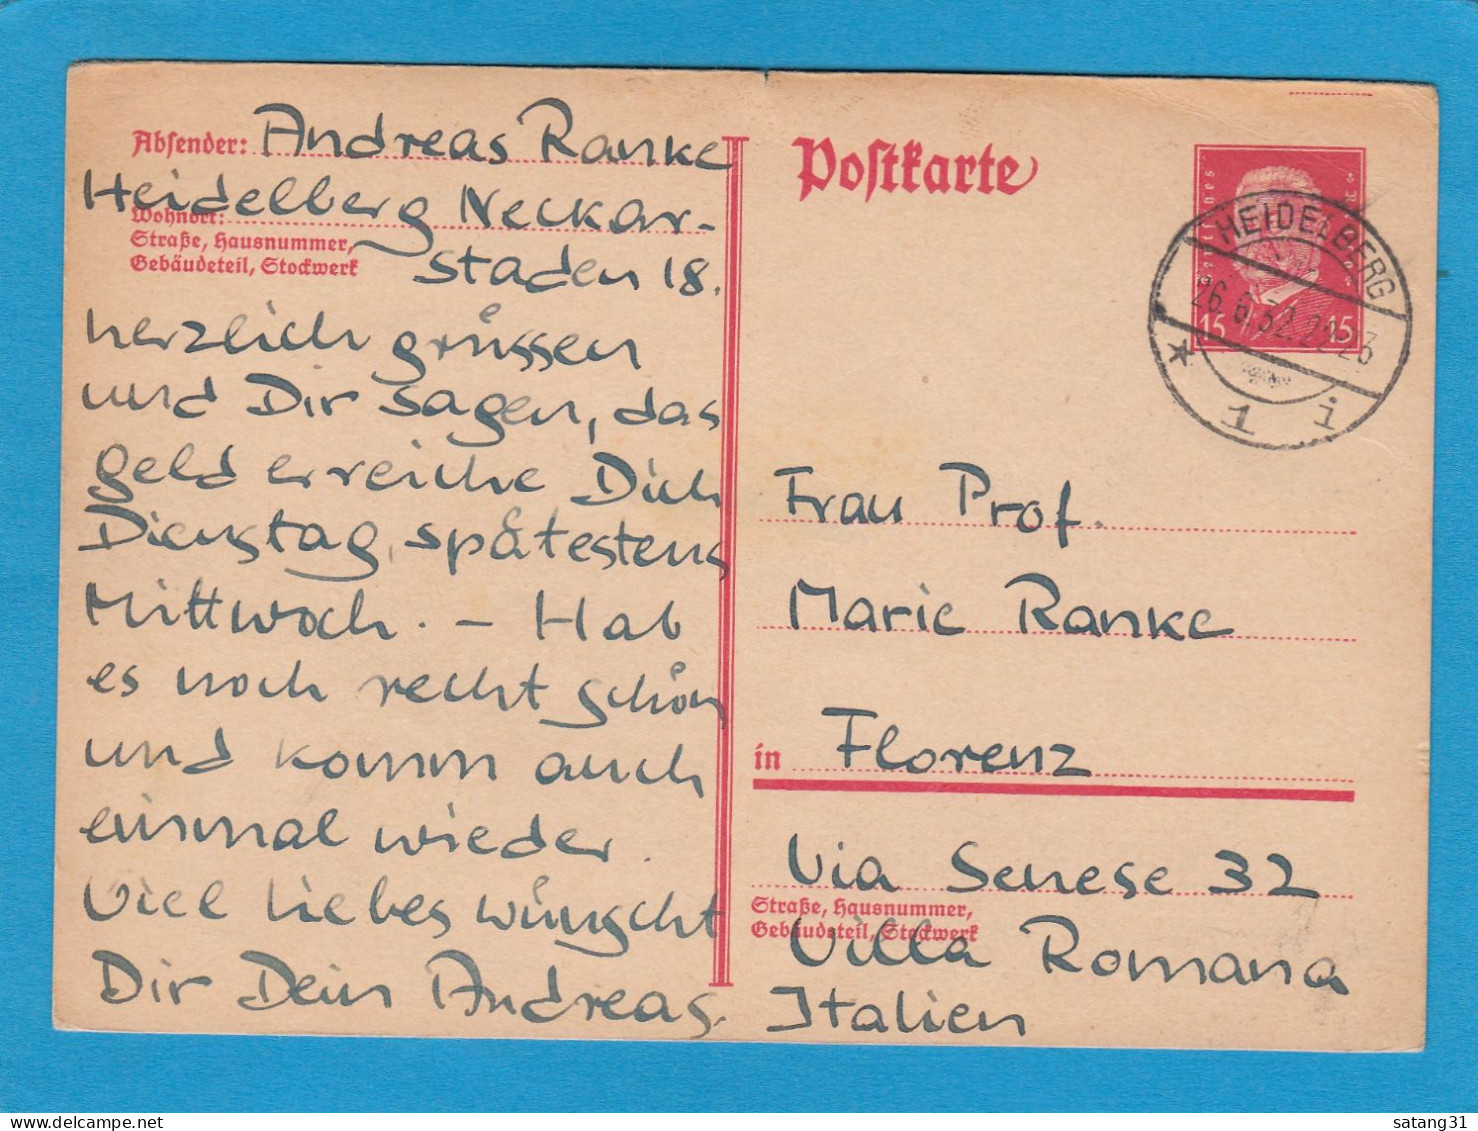 Absender: Andreas Ranke
Heidelberg Neckar-
Wohnort:
Straße, Hausnummer,
Gebäudeteil, Stockwerk
staden 18.
herzlich grüssen
und Dir sagen, das
geld erreiche Dich
Dienstag, spätestens
Mittwoch. – Hab
es noch recht schön
und komm auch
einmal wieder.
Viel liebes wünscht
Dir Dein Andreas.
Postkarte
Deutsches Reich
15 15
HEIDELBERG
26.6.32.22-23
* 1 i
Frau Prof.
Marie Ranke
in Florenz
Via Senese 32
Straße, Hausnummer,
Gebäudeteil, Stockwerk
Villa Romana
Italien
satang31